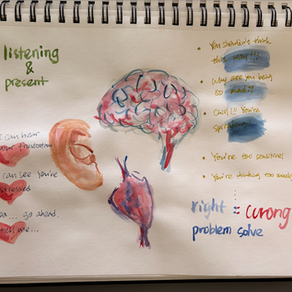 listening
&
present
I can hear
your frustration
I can see you're
stressed
go ahead
tell me...
You shouldn't think
this
Why are you being
so
Chill!!! You're
You're too sensitive
You're thinking too much
right = wrong
problem solve